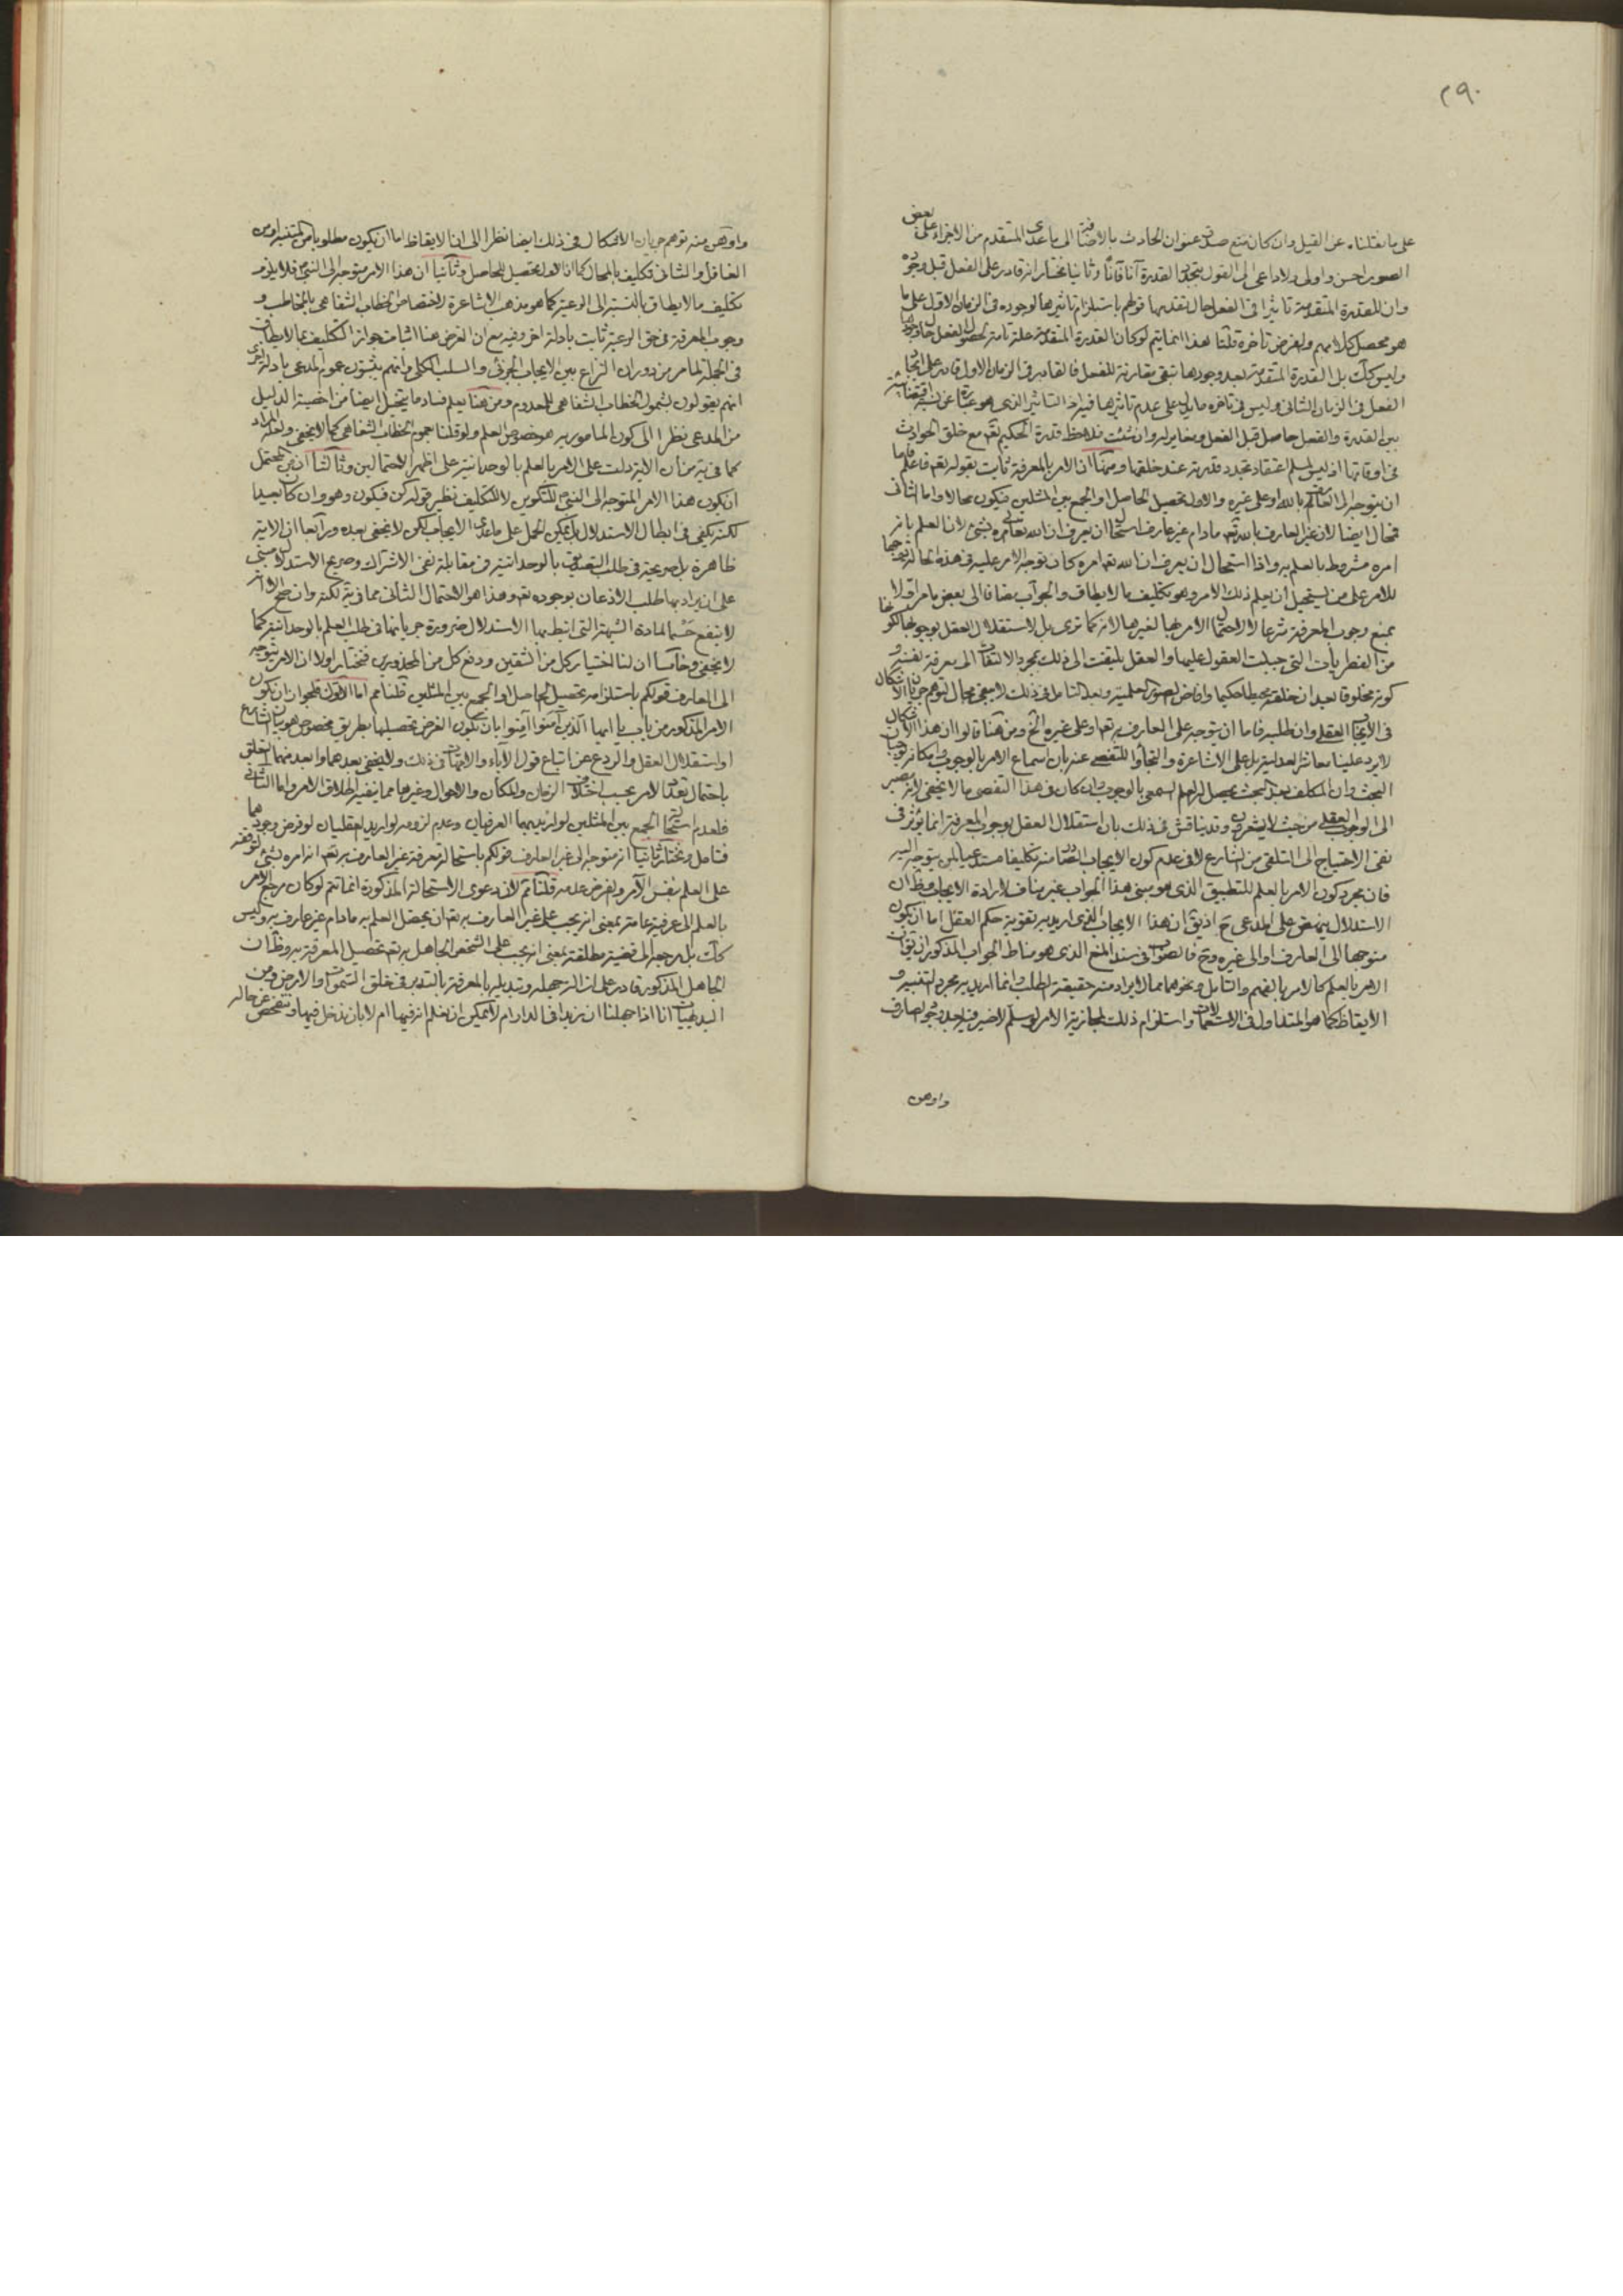 ٢٩٠
على ما نقلناه عن القيل وان كان منع صدق عنوان الحادث بالاضافة الى ما عدى المتقدم من الاجزاء على بعض
الصور احسن واولى ولا داعى الى القول بتجدد القدرة آنا فآنا وثانيا نختار انه قادر على الفعل قبل وجوده
وان للقدرة المتقدمة تاثيرا فى الفعل حال تقدمها قولهم باستلزام تاثيرها لوجوده فى الزمان الاول على ما
هو محصل كلامهم ولفرض تأخره قلنا هذا انما يتم لو كان القدرة المتقدمة علة تامة لحصول الفعل حال وجودها
وليس كك بل القدرة المتقدمة بعد وجودها تبقى مقارنة للفعل فالقادر فى الزمان الاول قادر على ايجاد
الفعل فى الزمان الثانى وليس فى تاخره ما يدل على عدم تاثيرها فيه اذ التاثير الذى هو عبارة عن نسبة اقتضائية
بين القدرة والفعل حاصل قبل الفعل ومغاير له وان شئت فلاحظ قدرة الحكيم تعم مع خلق الحوادث
فى اوقاتها اذ ليس لمسلم اعتقاد تجدد قدرته عند خلقها ومنها ان الامر بالمعرفة ثابت بقوله تعم فاعلم فاما
ان يتوجه الى العالم بالله او على غيره والاول تحصيل الحاصل او الجمع بين المثلين فيكون محالا واما الثانى
فمحال ايضا لان غير العارف بالله تعم مادام غير عارف استحال ان يعرف ان الله تعالى امره بشئ لان العلم بانه
امره مشروط بالعلم به واذا استحال ان يعرف ان الله تعم امره كان توجه الامر عليه فى هذه الحالة توجيها
للامر على من يستحيل ان يعلم ذلك الامر وهو تكليف ما لا يطاق والجواب مضافا الى بعض ما مر اولا
بمنع وجوب المعرفة شرعا لا لاحتمال الامر بها لغيرها لانه كما ترى بل لاستقلال العقل بوجوبها لكونها
من الفطريات التى جبلت العقول عليها والعقل يلتفت الى ذلك بمجرد الالتفات الى معرفة نفسه و
كونه مخلوقا بعد ان خلقه محيطا حكيما وافاض الصور العلمية وبعد التامل فى ذلك لا يبقى مجال لتوهم جريان الاشكال
فى الايجاب العقلى وان طلبه فاما ان يتوجه على العارف به تعم او على غيره الخ ومن هنا قالوا ان هذا الاشكال
لا يرد علينا معاشر العدلية بل على الاشاعرة والتجأوا للتفصى عنه بان اسماع الامر بالوجوب
البحث وان المكلف بعد البحث يحصل له العلم السمعى بالوجوب وان كان فى هذا التفصى ما لا يخفى لانه مصير
الى الوجوب العقلى من حيث لا يشعرون وقد يناقش فى ذلك بان استقلال العقل بوجوب المعرفة انما يؤثر فى
نفى الاحتياج الى التلقى من الشارع لا فى عدم كون الايجاب الصادر منه تكليفا مستدعيا لمن يتوجه اليه
فان مجرد كون الامر بالعلم للتطبيق الذى هو مبنى هذا الجواب غير مناف لارادة الايجاب
الاستدلال ينهض على المدعى ح اذ يق ان هذا الايجاب الذى اريد به تقوية حكم العقل اما ان يكون
متوجها الى العارف او الى غيره وح فالصواب فى سند المنع الذى هو مناط الجواب المذكور ان يقال ان
الامر بالعلم كالامر بالفهم والتامل ونحوهما مما لا يراد منه حقيقة الطلب وانما اريد به مجرد التنبيه و
الايقاظ كما هو المتداول فى الاستعمالات واستلزام ذلك لمجازية الامر لو سلم لا ضير فيه بعد وجود الصارف
واوهن
واوهن منه توهم جريان الاشكال فى ذلك ايضا نظرا الى ان الايقاظ اما ان يكون مطلوبا من المتنبه او من
الغافل والثانى تكليف بالمحال كما ان الاول تحصيل للحاصل وثانيا ان هذا الامر متوجه الى النبى ص فلا يلزم
تكليف ما لا يطاق بالنسبة الى الرعية كما هو مذهب الاشاعرة لاختصاص الخطاب الشفاهى بالمخاطب و
وجوب المعرفة فى حق الرعية ثابت بادلة اخر وفيه مع ان الغرض هنا اثبات جواز التكليف بما لا يطاق
فى الجملة لما مر من دوران النزاع بين الايجاب الجزئى والسلب الكلى وانهم يثبتون عموم المدعى بادلة اخرى
انهم يقولون بشمول الخطاب الشفاهى للمعدوم ومن هنا يعلم فساد ما يتخيل ايضا من اخصية الدليل
من المدعى نظرا الى كون المامور به هو خصوص العلم ولو قلنا بعموم الخطاب الشفاهى كما لا يخفى ولعله المراد
بما فى من ان الاية دلت على الامر بالعلم بالوحدانية على اظهر الاحتمالين وثالثا ان من المحتمل
ان يكون هذا الامر المتوجه الى النبى للتكوين لا للتكليف نظير قوله كن فيكون وهو وان كان بعيدا
لكنه يكفى فى ابطال الاستدلال بل يمكن الحمل على ما عدى الايجاب لكن لا يخفى بعده ورابعا ان الاية
ظاهرة بل صريحة فى طلب التصديق بالوحدانية فى مقابلة نفى الاشراك وصريح الاستدلال مبنى
على ان يراد بها طلب الاذعان بوجوده تعم وهذا هو الاحتمال الثانى مما فى لكنه وان صح الا انه
لا ينفع حسما لمادة الشبهة التى انيط بها الاستدلال ضرورة جريانها فى طلب العلم بالوحدانية كما
لا يخفى وخامسا ان لنا اختيار كل من الشقين ودفع كل من المحذورين فنختار اولا ان الامر يتوجه
الى العارف قولكم باستلزامه تحصيل الحاصل او الجمع بين المثلين قلنا مم اما الاول فلجواز ان يكون
الامر المذكور من باب يا ايها الذين آمنوا آمنوا بان يكون الغرض تحصيلها بطريق مخصوص هو بيان الشارع
او استقلال العقل والردع عن اتباع قول الآباء والامهات فى ذلك ولا يخفى بعدهما وابعد منهما
باحتمال تعدد الامر بحسب اختلاف الزمان والمكان والاحوال وغيرها مما ينفيه اطلاق الامر واما الثانى
فلعدم استحالة الجمع بين المثلين لو اريد بهما العرضيان وعدم لزومه لو اريد العقليان لو فرض وجودهما
فتامل ونختار ثانيا انه متوجه الى غير العارف قولكم باستحالة معرفة غير العارف به تعم انه امره بشئ لتوقفه
على العلم بنفس الآمر والمفروض عدمه قلنا مم لان دعوى الاستحالة المذكورة انما تتم لو كان مرجع الامر
بالعلم الى عرفية عامة بمعنى انه يجب على غير العارف به تعم ان يحصل العلم به مادام غير عارف به وليس
كك بل مرجعه الى قضية مطلقة بمعنى انه يجب على الشخص الجاهل به تعم تحصيل المعرفة به وظ ان
الجاهل المذكور قادر على ازالة جهله وتبديله بالمعرفة بالتدبر فى خلق السموات والارض ومن
البديهيات انا اذا جهلنا ان زيدا فى الدار ام لا يمكن ان نعلم انه فيها ام لا بان ندخل فيها ونتفحص عن حاله